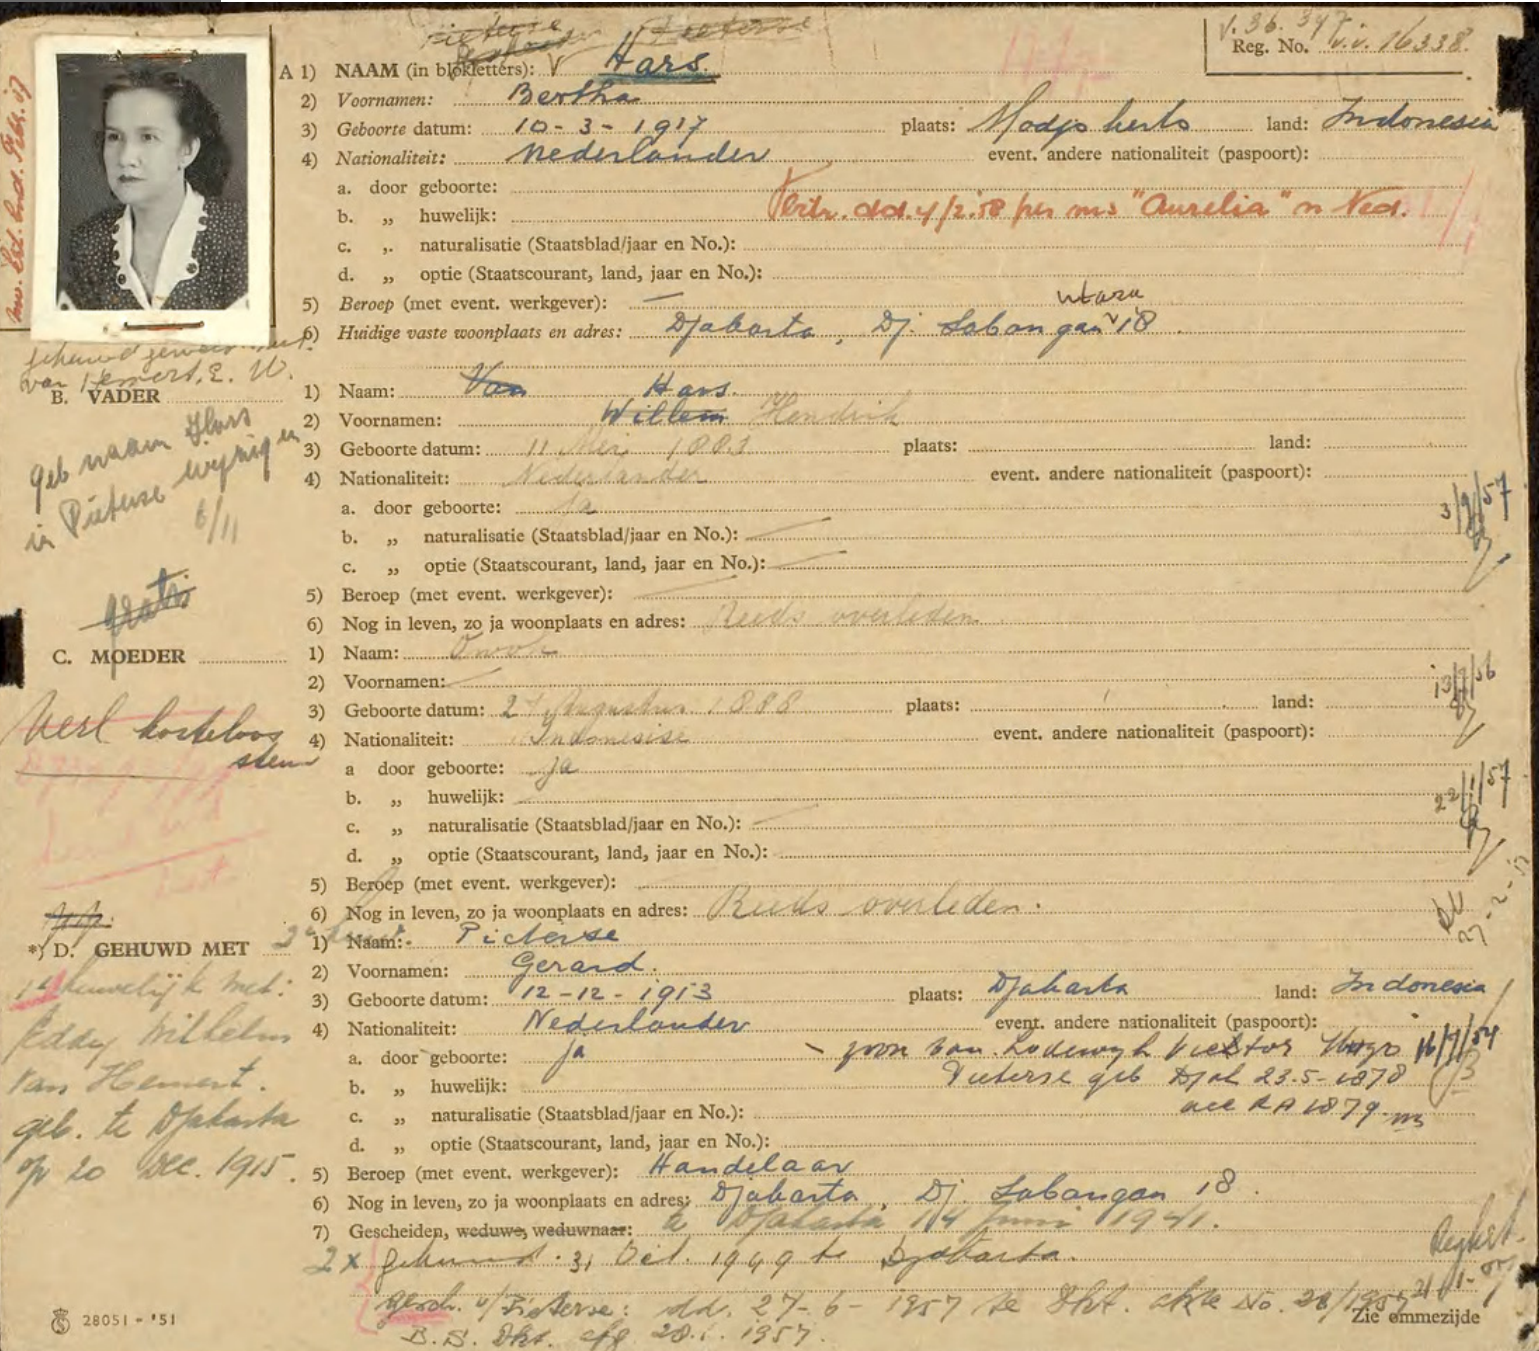 Pieterse Pieterse
V. 36. 347
Reg. No. V.V. 16338.
A 1) NAAM (in blokletters): V Hars
2) Voornamen: Bertha
3) Geboorte datum: 10-3-1917 plaats: Modjokerto land: Indonesia
4) Nationaliteit: Nederlander event. andere nationaliteit (paspoort):
a. door geboorte:
b. „ huwelijk: Vertr. dd. 4/2.58 per ms "Aurelia" n Ned.
c. „ naturalisatie (Staatsblad/jaar en No.):
d. „ optie (Staatscourant, land, jaar en No.):
5) Beroep (met event. werkgever): —
utara
6) Huidige vaste woonplaats en adres: Djakarta, Dj. Sabangan 18.
gehuwd geweest met
van Hemert, E. W.
B. VADER
1) Naam: Van Hars.
2) Voornamen: Willem Hendrik
3) Geboorte datum: 11 Mei 1883 plaats: land:
4) Nationaliteit: Nederlander event. andere nationaliteit (paspoort):
a. door geboorte: Ja
b. „ naturalisatie (Staatsblad/jaar en No.): —
c. „ optie (Staatscourant, land, jaar en No.): —
5) Beroep (met event. werkgever): —
6) Nog in leven, zo ja woonplaats en adres: Reeds overleden
geb naam Hars
in Pieterse wijzigen
6/11
gratis
C. MOEDER
1) Naam:
2) Voornamen: —
3) Geboorte datum: Augustus 1888 plaats: land:
4) Nationaliteit: Indonesise event. andere nationaliteit (paspoort):
a door geboorte: ja
b. „ huwelijk:
c. „ naturalisatie (Staatsblad/jaar en No.): —
d. „ optie (Staatscourant, land, jaar en No.):
5) Beroep (met event. werkgever):
6) Nog in leven, zo ja woonplaats en adres: Reeds overleden.
Verl kosteloos
*) D. GEHUWD MET
1) Naam: Pieterse
2) Voornamen: Gerard.
3) Geboorte datum: 12-12-1913 plaats: Djakarta land: Indonesia
4) Nationaliteit: Nederlander event. andere nationaliteit (paspoort):
a. door geboorte: ja - zoon van Lodewyk Victor Hugo
b. „ huwelijk: Pieterse geb Djak 23.5-1878
c. „ naturalisatie (Staatsblad/jaar en No.): RA 1879
d. „ optie (Staatscourant, land, jaar en No.):
5) Beroep (met event. werkgever): Handelaar
6) Nog in leven, zo ja woonplaats en adres: Djakarta, Dj. Sabangan 18.
7) Gescheiden, weduwe, weduwnaar: te Djakarta 14 Juni 1941.
2x gehuwd. 31 Oct. 1949 te Djakarta.
gesch. v/ Pieterse: dd. 27-6-1957 te Dkt. akte No. 28/1957
B.S. Dkt. afg 28.1.1957.
1e huwelijk met:
Eddy Wilhelm
van Hemert.
geb. te Djakarta
op 20 Dec. 1915.
22/1/57
16/7/54
28051 - '51
Zie ommezijde